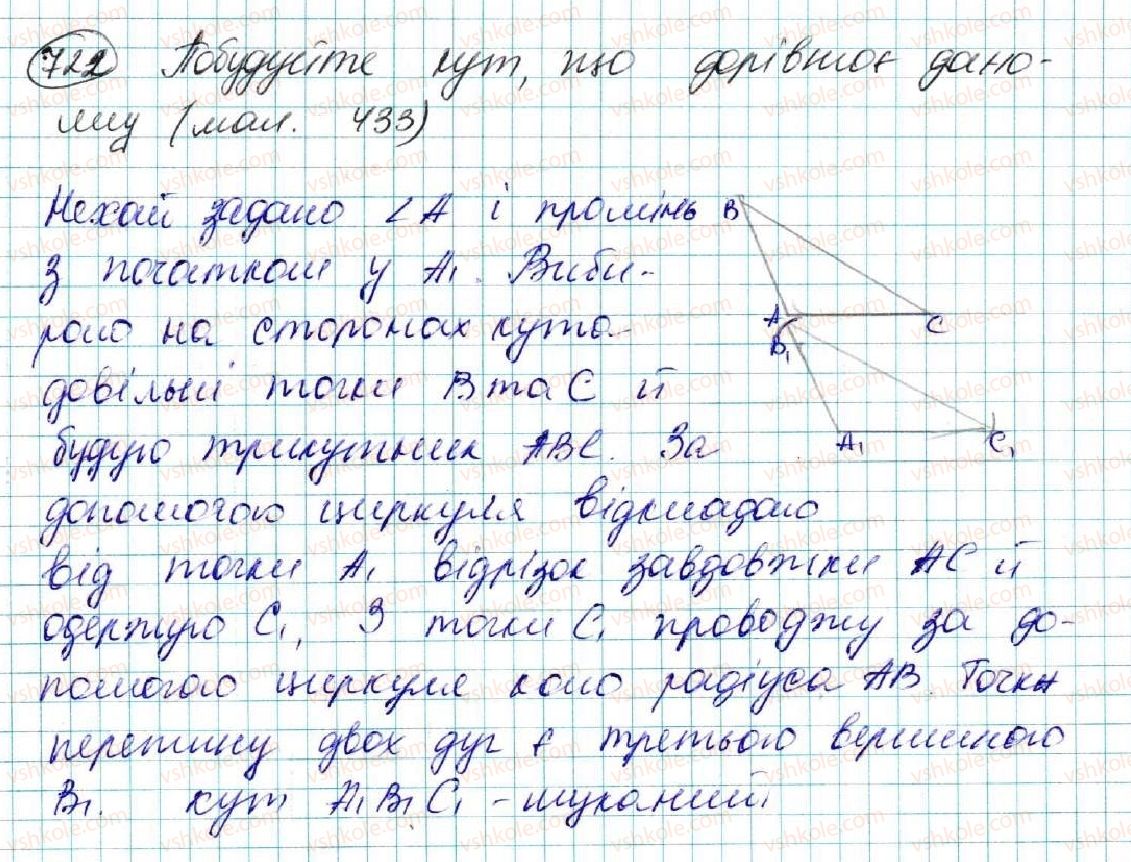 722 Побудуйте кут, що дорівнює дано-
му (мал. 433)
Нехай задано ∠A і промінь
з початком у A₁. Виби-
раю на сторонах кута
довільні точки B та C й
будую трикутник ABC. За
допомогою циркуля відкладаю
від точки A₁ відрізок завдовжки AC й
одержую C₁, З точки C₁ проводжу за до-
помогою циркуля коло радіуса AB. Точка
перетину двох дуг є третьою вершиною
B₁. кут A₁B₁C₁ - шуканий
B
A
C
B₁
A₁
C₁
vshkole.com